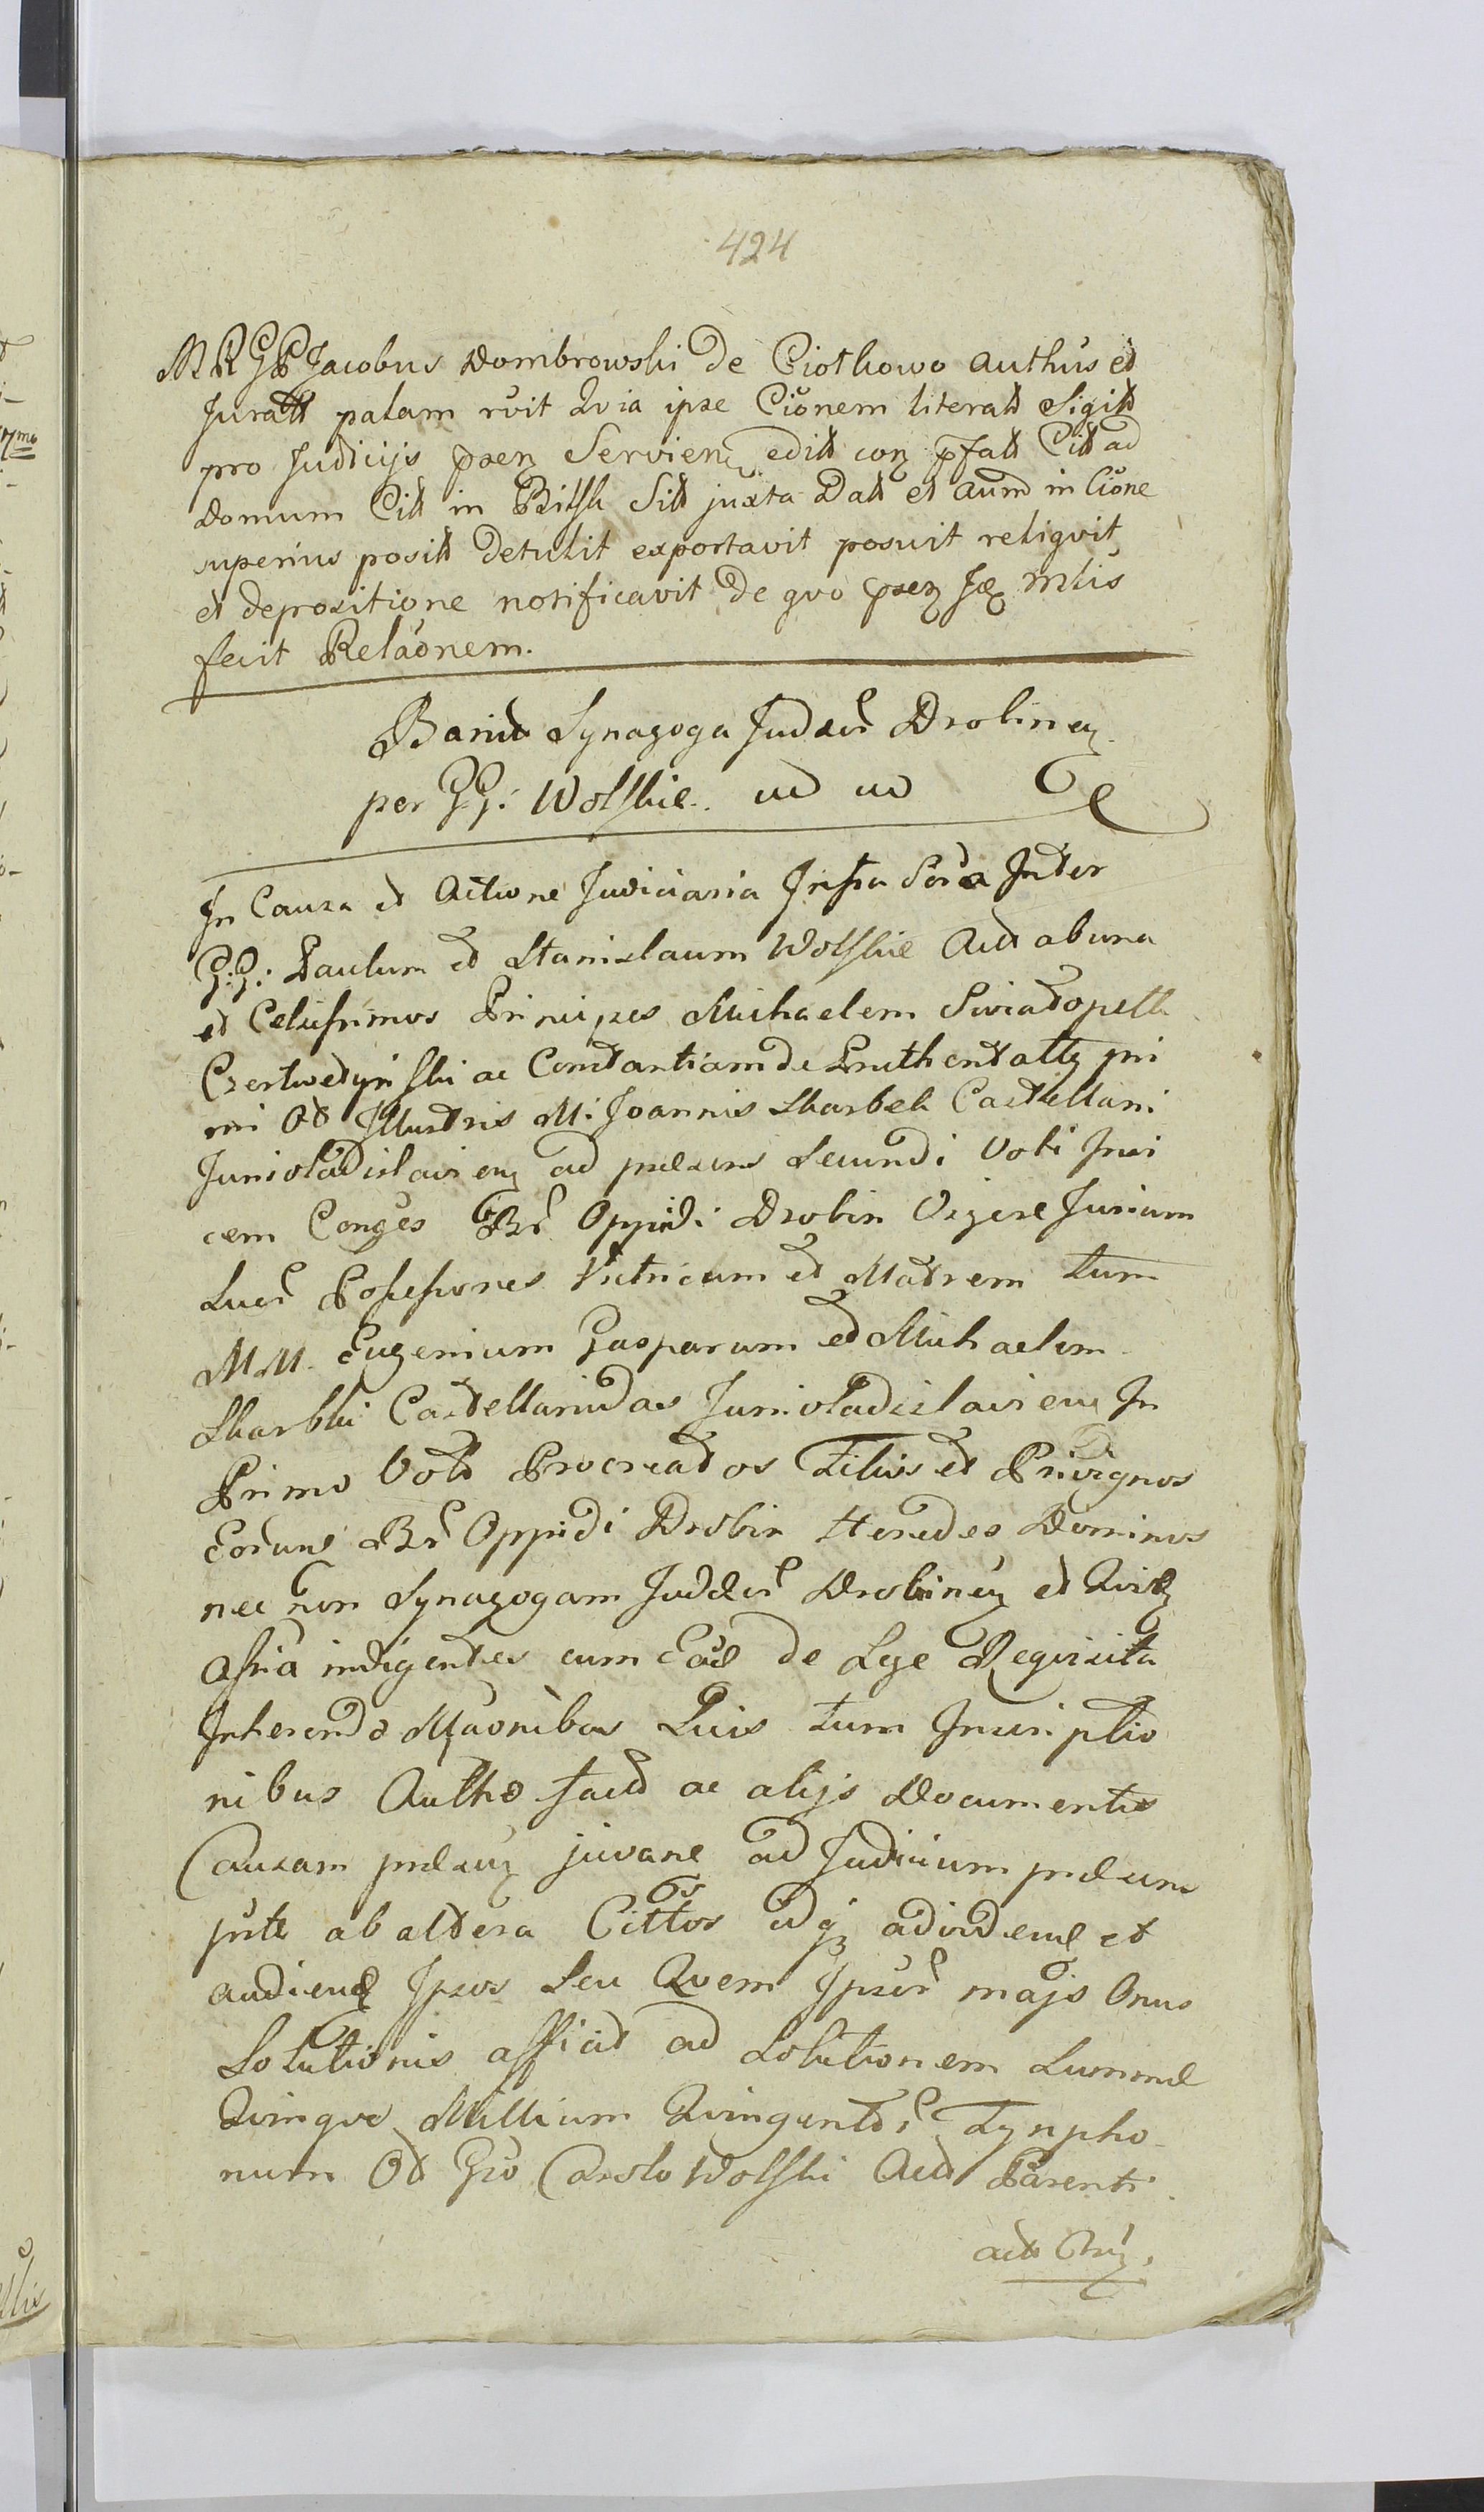 424
MRGP Jacobus Dombrowski de Ciothowo Authús et
Juratt palam rűit Qvia ipse Ciőnem literatt Sigilt
pro Judicijs pꝛseꝫ Servieꝫ editt coꝫ pfatt Citt ad
domum Citt in Sitt juxta Datt et aum̃ in Ciőne
superius positt detulit exportavit posuit reliqvit
et depositione notificavit de qvo pꝛseꝫ mlis
fecit Relaőnem.
Banit Synagoga Judæor̃ Drobineꝫ
per GG: Wolskie
In Causa et Actione Judiciaria Infra Inter
G:G: Paulum et Stanislaum Wolskie Act ab una
et Celsissimos Principes Michaelem Swiatopelk
Czertwetynski ac Constantiam de pri
mi Ol Illustris M: Joannis Skarbek Castellani
Junivladislavieꝫ ad præsens Secundi Voti Invi
cem Conģes Br̃ Oppidi Drobin Vigore Jurium
Suor̃ Possessores Vitricum et Matrem tum
M.M. Eugenium Gasparum et Michaelem
Skarbki Castellanidas Junivladislavieꝫ In
Primo Voto Procreatos Filios et Privignos
Eorunđ Br̃ Oppidi Drobin Heredes Dominos
nec non Synagogam Judæor̃ Drobineꝫ et
Assña indigentes cum Eađ de Lege Reqvisita
Inherendo Mţaonibus Suis tum Inscriptio
nibus Auth fact ac alijs Documentis
Causam præseꝫ juvane ad Judicium præsens
pste ab altera Cittos idqꝫ ad videnđ et
audienđ Ipsos Seu Qvem Ipsor̃ majs Onus
Solutionis afficit ad Solutionem Summæ
Qvinqve Millium Qvingentor̃ Tynpho-
num Ol Gso Carolo Wolski Act Parenti